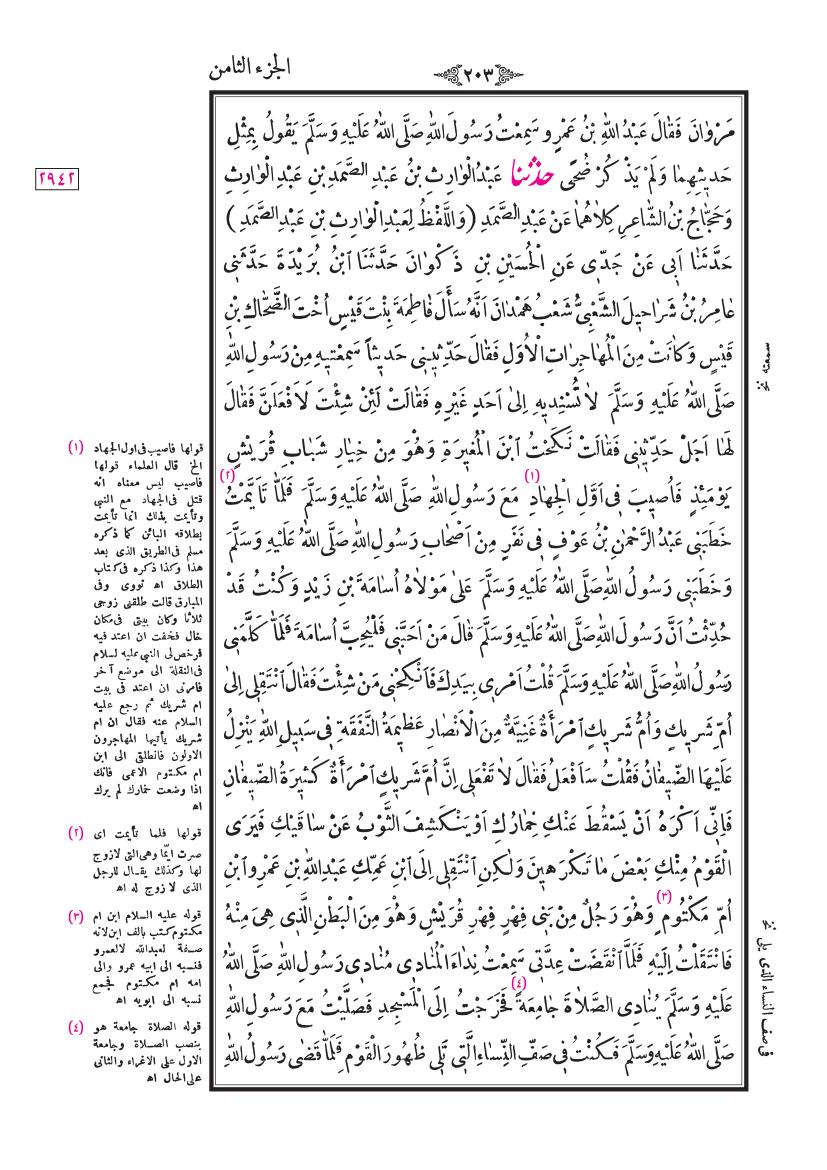 الجزء الثامن
٢٠٣
مَرْوٰانَ فَقٰالَ عَبْدُ اللّٰهِ بْنُ عَمْرٍو سَمِعْتُ رَسُولَ اللّٰهِ صَلَّى اللّٰهُ عَلَيْهِ وَسَلَّمَ يَقُولُ بِمِثْلِ
حَديثِهِمٰا وَلَمْ يَذْكُرْ ضُحًى حدثنا عَبْدُ الْوٰارِثِ بْنُ عَبْدِ الصَّمَدِ بْنِ عَبْدِ الْوٰارِثِ
وَحَجّٰاجُ بْنُ الشّٰاعِرِ كِلاٰهُمٰا عَنْ عَبْدِ الصَّمَدِ (وَاللَّفْظُ لِعَبْدِ الْوٰارِثِ بْنِ عَبْدِ الصَّمَدِ)
حَدَّثَنٰا اَبِى عَنْ جَدِّى عَنِ الْحُسَيْنِ بْنِ ذَكْوٰانَ حَدَّثَنَا ابْنُ بُرَيْدَةَ حَدَّثَنِى
عٰامِرُ بْنُ شَرٰاحِيلَ الشَّعْبِىُّ شَعْبُ هَمْدٰانَ اَنَّهُ سَأَلَ فٰاطِمَةَ بِنْتَ قَيْسٍ اُخْتَ الضَّحّٰاكِ بْنِ
قَيْسٍ وَكٰانَتْ مِنَ الْمُهٰاجِرٰاتِ الْاُوَلِ فَقٰالَ حَدِّثِينِى حَديثاً سَمِعْتِيهِ مِنْ رَسُولِ اللّٰهِ
صَلَّى اللّٰهُ عَلَيْهِ وَسَلَّمَ لاٰ تُسْنِدِيهِ اِلىٰ اَحَدٍ غَيْرِهِ فَقٰالَتْ لَئِنْ شِئْتَ لَاَفْعَلَنَّ فَقٰالَ
لَهٰا اَجَلْ حَدِّثِينِى فَقٰالَتْ نَكَحْتُ ابْنَ الْمُغِيرَةِ وَهُوَ مِنْ خِيٰارِ شَبٰابِ قُرَيْشٍ
يَوْمَئِذٍ فَاُصِيبَ فِى اَوَّلِ الْجِهٰادِ (١) مَعَ رَسُولِ اللّٰهِ صَلَّى اللّٰهُ عَلَيْهِ وَسَلَّمَ فَلَمّٰا تَأَيَّمْتُ (٢)
خَطَبَنِى عَبْدُ الرَّحْمٰنِ بْنُ عَوْفٍ فِى نَفَرٍ مِنْ اَصْحٰابِ رَسُولِ اللّٰهِ صَلَّى اللّٰهُ عَلَيْهِ وَسَلَّمَ
وَخَطَبَنِى رَسُولُ اللّٰهِ صَلَّى اللّٰهُ عَلَيْهِ وَسَلَّمَ عَلىٰ مَوْلاٰهُ اُسٰامَةَ بْنِ زَيْدٍ وَكُنْتُ قَدْ
حُدِّثْتُ اَنَّ رَسُولَ اللّٰهِ صَلَّى اللّٰهُ عَلَيْهِ وَسَلَّمَ قٰالَ مَنْ اَحَبَّنِى فَلْيُحِبَّ اُسٰامَةَ فَلَمّٰا كَلَّمَنِى
رَسُولُ اللّٰهِ صَلَّى اللّٰهُ عَلَيْهِ وَسَلَّمَ قُلْتُ اَمْرِى بِيَدِكَ فَاَنْكِحْنِى مَنْ شِئْتَ فَقٰالَ انْتَقِلِى اِلىٰ
اُمِّ شَرِيكٍ وَاُمُّ شَرِيكٍ امْرَأَةٌ غَنِيَّةٌ مِنَ الْاَنْصٰارِ عَظِيمَةُ النَّفَقَةِ فِى سَبِيلِ اللّٰهِ يَنْزِلُ
عَلَيْهَا الضِّيفٰانُ فَقُلْتُ سَأَفْعَلُ فَقٰالَ لاٰ تَفْعَلِى اِنَّ اُمَّ شَرِيكٍ امْرَأَةٌ كَثِيرَةُ الضِّيفٰانِ
فَاِنِّى اَكْرَهُ اَنْ يَسْقُطَ عَنْكِ خِمٰارُكِ اَوْ يَنْكَشِفَ الثَّوْبُ عَنْ سٰاقَيْكِ فَيَرَى
الْقَوْمُ مِنْكِ بَعْضَ مٰا تَكْرَهِينَ وَلٰكِنِ انْتَقِلِى اِلَى ابْنِ عَمِّكِ عَبْدِ اللّٰهِ بْنِ عَمْرِو ابْنِ
اُمِّ مَكْتُومٍ (٣) وَهُوَ رَجُلٌ مِنْ بَنِى فِهْرٍ فِهْرِ قُرَيْشٍ وَهُوَ مِنَ الْبَطْنِ الَّذِى هِىَ مِنْهُ
فَانْتَقَلْتُ اِلَيْهِ فَلَمَّا انْقَضَتْ عِدَّتِى سَمِعْتُ نِدٰاءَ الْمُنٰادِى مُنٰادِى رَسُولِ اللّٰهِ صَلَّى اللّٰهُ
عَلَيْهِ وَسَلَّمَ يُنٰادِى الصَّلاٰةَ جٰامِعَةً (٤) فَخَرَجْتُ اِلَى الْمَسْجِدِ فَصَلَّيْتُ مَعَ رَسُولِ اللّٰهِ
صَلَّى اللّٰهُ عَلَيْهِ وَسَلَّمَ فَكُنْتُ فِى صَفِّ النِّسٰاءِ الَّتِى تَلِى ظُهُورَ الْقَوْمِ فَلَمّٰا قَضٰى رَسُولُ اللّٰهِ
٢٩٤٢
سمعته نخ
فى صف النساء الذى يلى نخ
(١) قولها فاصيب فى اول الجهاد
الخ قال العلماء قولها
فاصيب ليس معناه انه
قتل فى الجهاد مع النبى
وتأيمت بذلك انما تأيمت
بطلاقه البائن كما ذكره
مسلم فى الطريق الذى بعد
هذا وكذا ذكره فى كتاب
الطلاق اه نووى وفى
المبارق قالت طلقنى زوجى
ثلاثا وكان بيتى فى مكان
خال فخفت ان اعتد فيه
فرخص لى النبى عليه السلام
فى النقلة الى موضع آخر
فامرنى ان اعتد فى بيت
ام شريك ثم رجع عليه
السلام عنه فقال ان ام
شريك يأتيها المهاجرون
الاولون فانطلقى الى ابن
ام مكتوم الاعمى فانك
اذا وضعت خمارك لم يرك
اه
(٢) قولها فلما تأيمت اى
صرت ايّما وهى التى لازوج
لها وكذلك يقال للرجل
الذى لا زوج له اه
(٣) قوله عليه السلام ابن ام
مكتوم كتب بالف ابن لانه
صفة لعبدالله لالعمرو
فنسبه الى ابيه عمرو والى
امه ام مكتوم فجمع
نسبه الى ابويه اه
(٤) قوله الصلاة جامعة هو
بنصب الصلاة وجامعة
الاول على الاغراء والثانى
على الحال اه